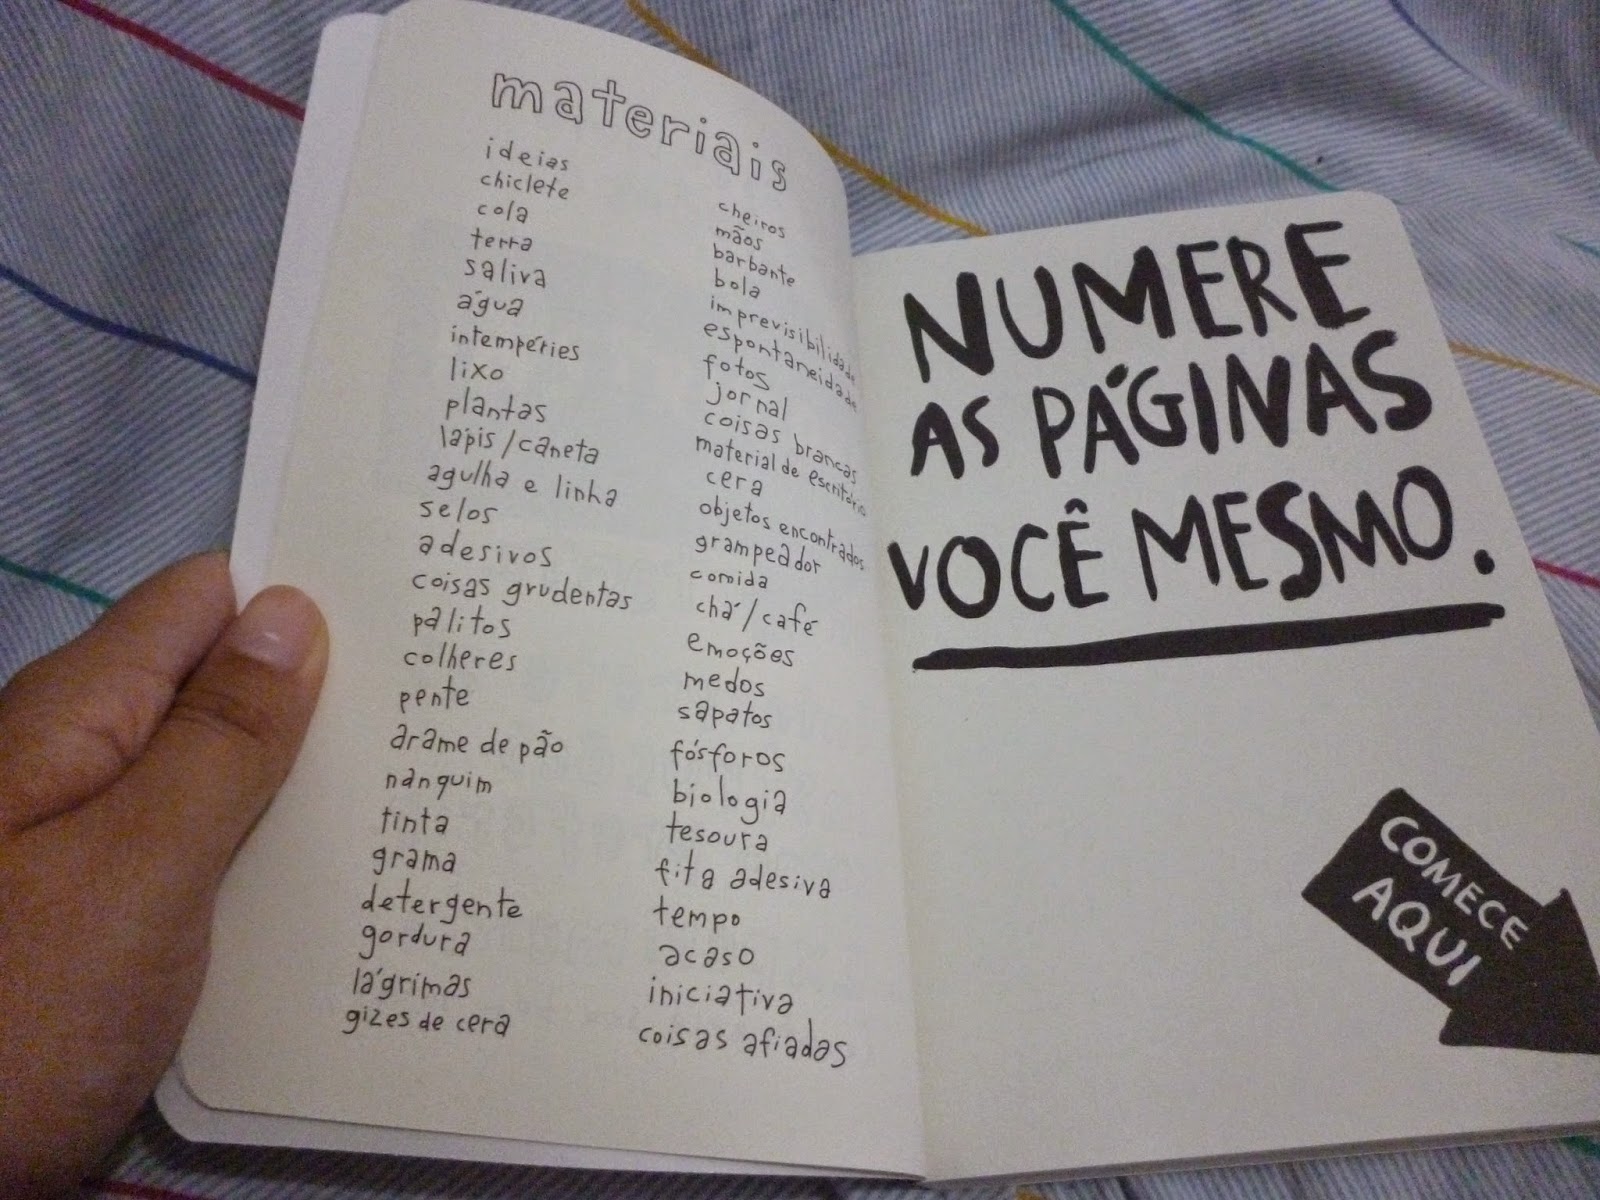 materiais
ideias
chiclete
cola
terra
saliva
água
intempéries
lixo
plantas
lápis/caneta
agulha e linha
selos
adesivos
coisas grudentas
palitos
colheres
pente
arame de pão
nanquim
tinta
grama
detergente
gordura
lágrimas
gizes de cera
cheiros
mãos
barbante
bola
imprevisibilidade
espontaneidade
fotos
jornal
coisas brancas
material de escritório
cera
objetos encontrados
grampeador
comida
chá/café
emoções
medos
sapatos
fósforos
biologia
tesoura
fita adesiva
tempo
acaso
iniciativa
coisas afiadas
NUMERE
AS PÁGINAS
VOCÊ MESMO.
COMECE
AQUI